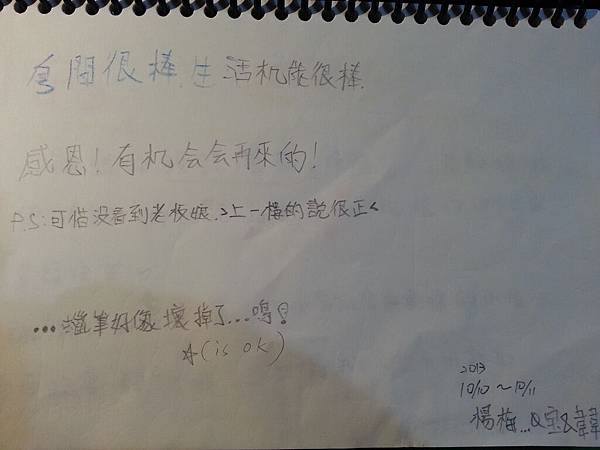 房間很棒.生活机能很棒.
感恩!有机会会再來的!
P.S:可惜没看到老板娘.>上一樓的說很正<
...蠟筆好像壞掉了...嗚!
☆(is ok)
2013
10/10~10/11
楊梅...&宝&韋